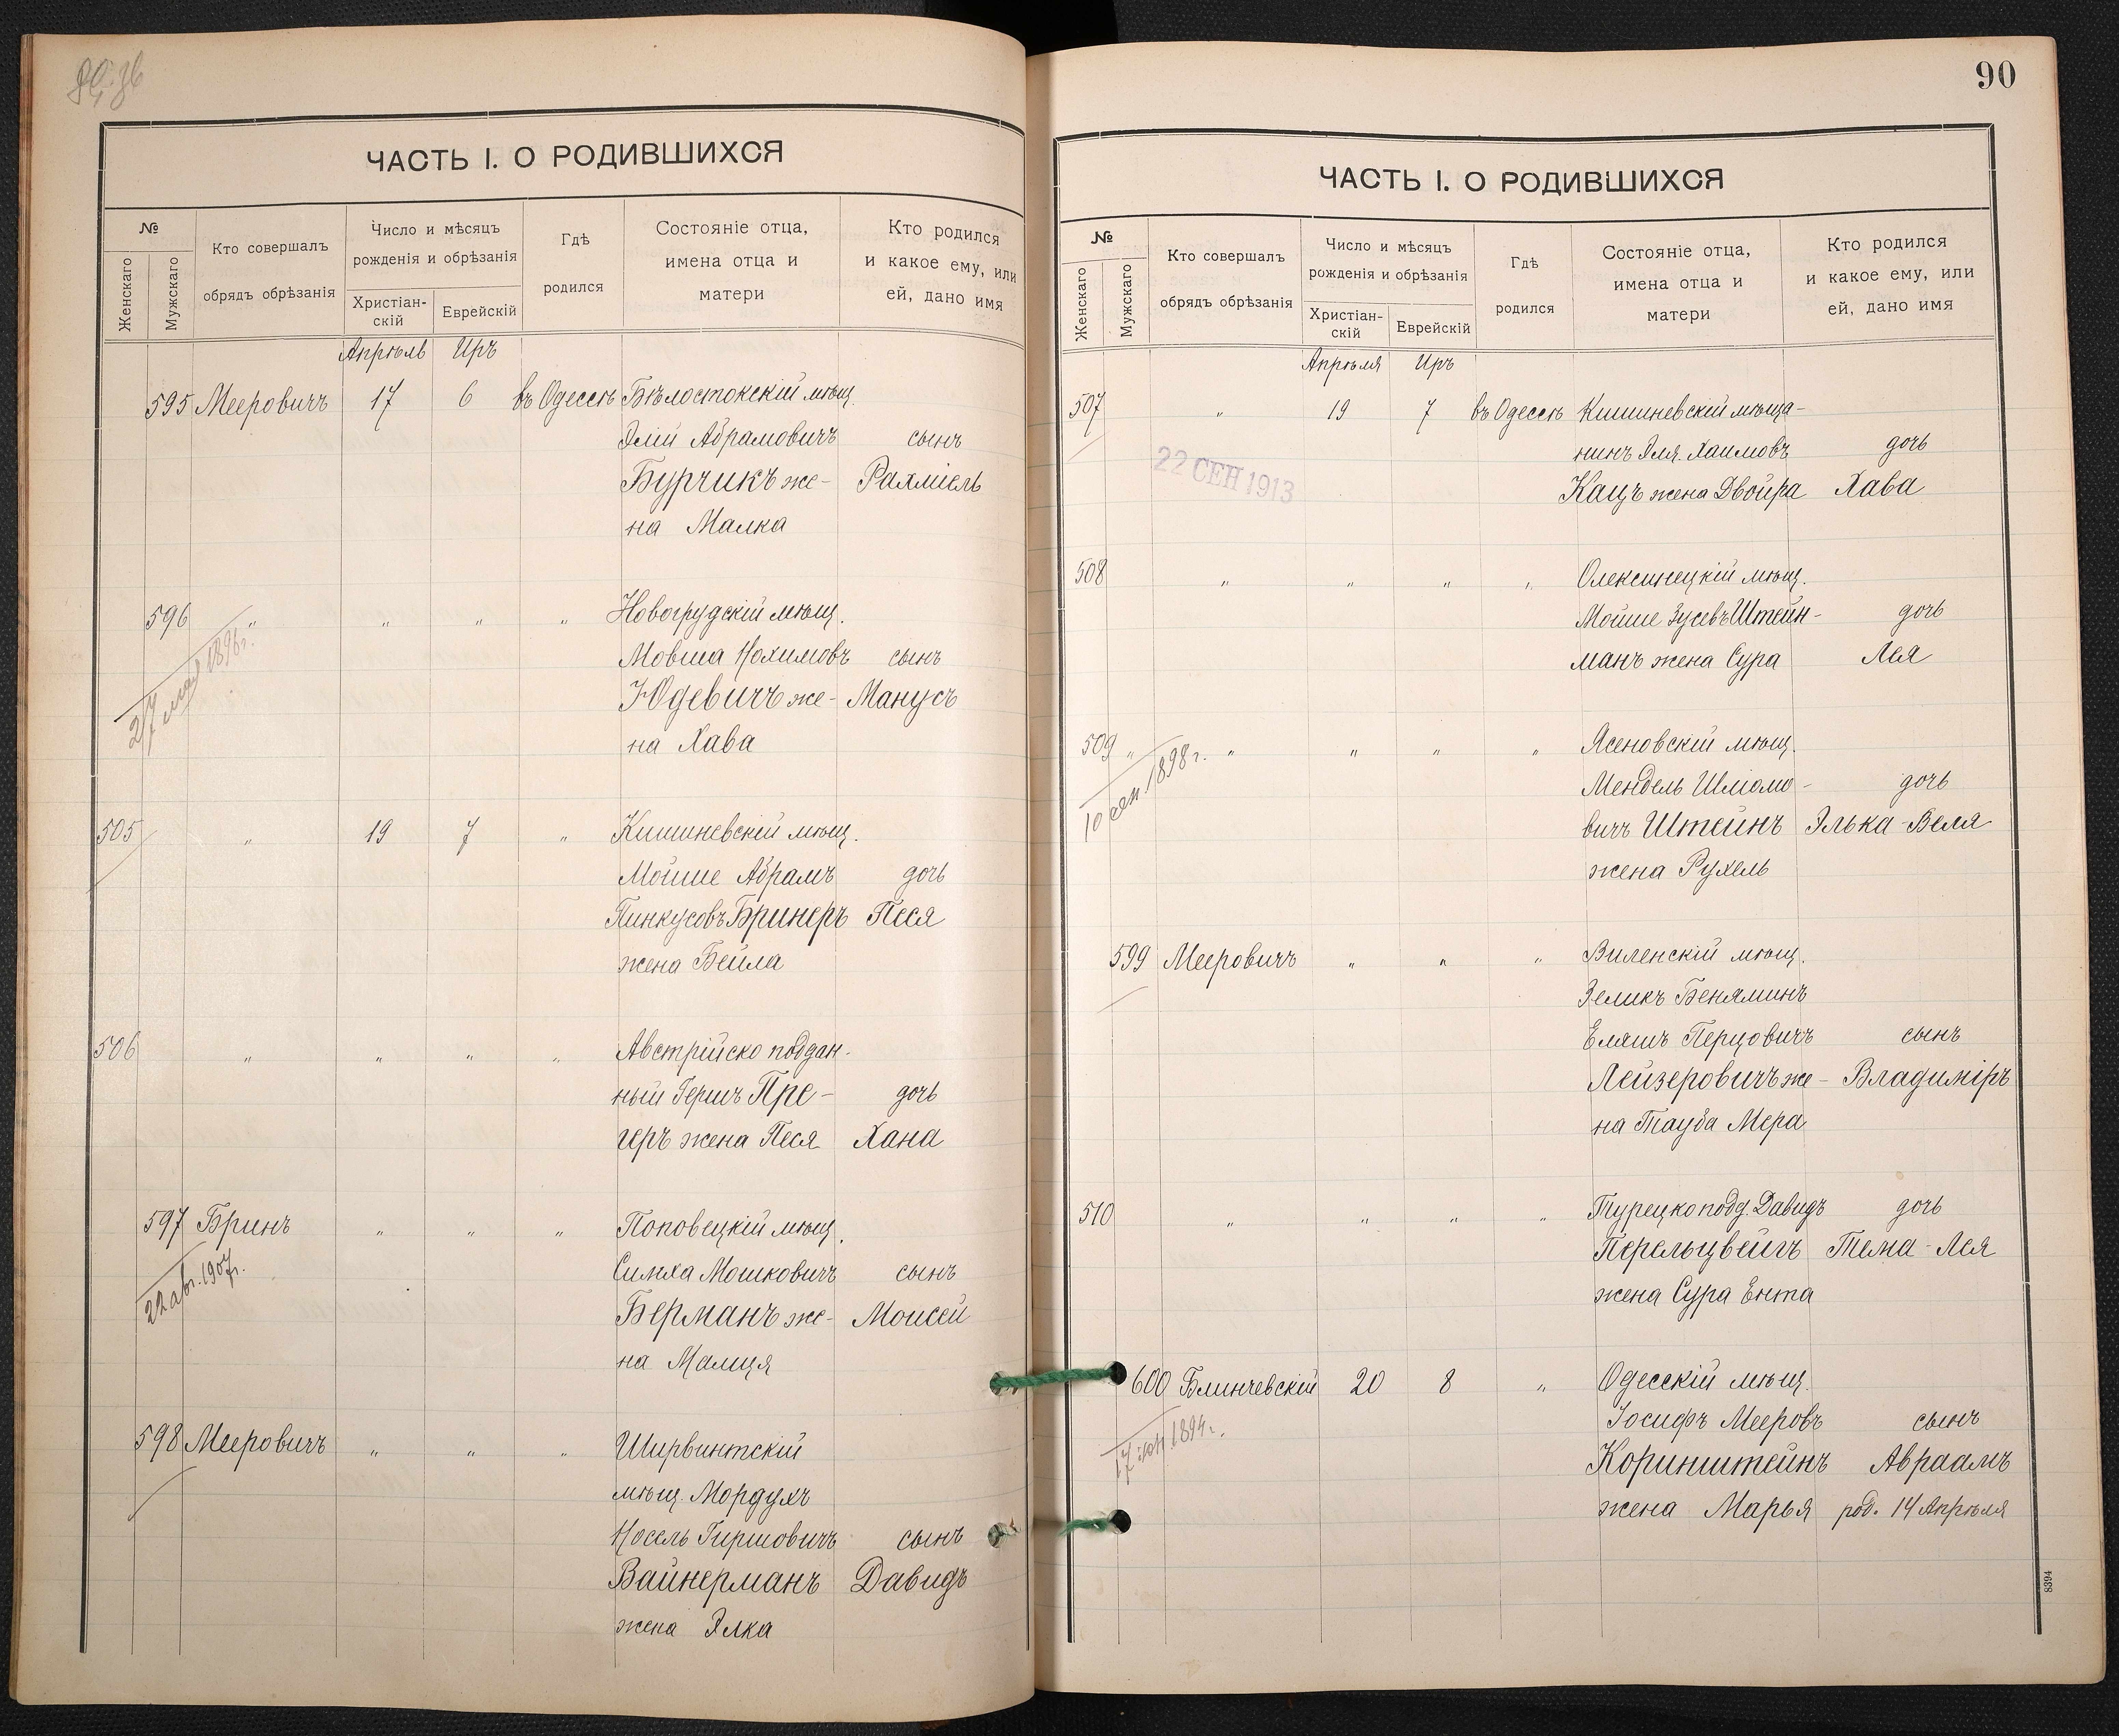 ЧАСТЬ I. О РОДИВШИХСЯ
№
Женскаго
Мужскаго
Кто совершалъ
обрядъ обрѣзанія
Число и мѣсяцъ
рожденія и обрѣзанія
Христіан-
скій
Еврейскій
Гдѣ
родился
Состояніе отца,
имена отца и
матери
Кто родился
и какое ему, или
ей, дано имя
Апрѣль Иръ
595 Мееровичъ 17 6 въ Одессѣ Бѣлостокскій мѣщ.
Элій Абрамовичъ сынъ
Бурчикъ же- Рахміель
на Малка
596 " " " " Новогрудскій мѣщ.
Мовша Нохимовъ сынъ
Юдевичъ же- Манусъ
на Хава
27 мая 1896г.
505 " 19 7 " Кишиневскій мѣщ.
Мойше Абрамъ дочь
Пинкусовъ Бринеръ Песя
жена Бейла
506 " " " " Австрійско поддан-
ный Гершъ Пре- дочь
геръ жена Песя Хана
597 Бринъ " " " Поповецкій мѣщ.
Симха Мошковичъ сынъ
Берманъ же- Моисей
на Малця
22 авг. 1907г.
598 Мееровичъ " " " Ширвинтскій
мѣщ. Мордухъ
Носель Гиршовичъ сынъ
Вайнерманъ Давидъ
жена Элка
90
ЧАСТЬ I. О РОДИВШИХСЯ
№
Женскаго
Мужскаго
Кто совершалъ
обрядъ обрѣзанія
Число и мѣсяцъ
рожденія и обрѣзанія
Христіан-
скій
Еврейскій
Гдѣ
родился
Состояніе отца,
имена отца и
матери
Кто родился
и какое ему, или
ей, дано имя
Апрѣля Иръ
507 " 19 7 въ Одессѣ Кишиневскій мѣща-
нинъ Эля Хаимовъ дочь
Кацъ жена Двойра Хава
22 СЕН 1913
508 " " " " Олексинецкій мѣщ.
Мойше Зусевъ Штейн- дочь
манъ жена Сура Лея
509 " " " " " Ясеновскій мѣщ.
Мендель Шліомо- дочь
вичъ Штейнъ Элька-Веля
жена Рухель
10 сен. 1898г.
599 Мееровичъ " " " Виленскій мѣщ.
Зеликъ Беняминъ
Еляшъ Перцовичъ сынъ
Лейзеровичъ же- Владиміръ
на Тауба Мера
510 " " " " Турецко подд. Давидъ дочь
Перельцвейгъ Тема-Лея
жена Сура Ента
600 Блинчевскій 20 8 " Одесскій мѣщ.
Іосифъ Мееровъ сынъ
Коринштейнъ Авраамъ
жена Марья род. 14 Апрѣля
8394